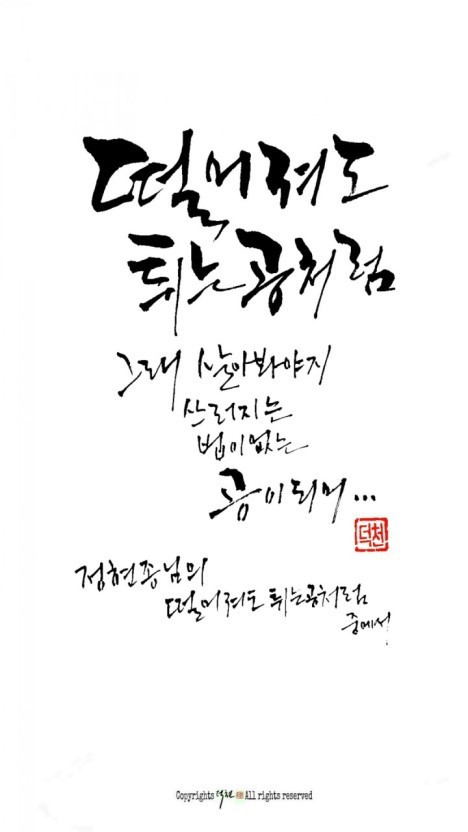 떨어져도
튀는 공처럼
그래 살아봐야지
쓰러지는
법이 없는
공이 되어...
덕천
정현종님의
떨어져도 튀는 공처럼
중에서
Copyrights 덕천 All rights reserved